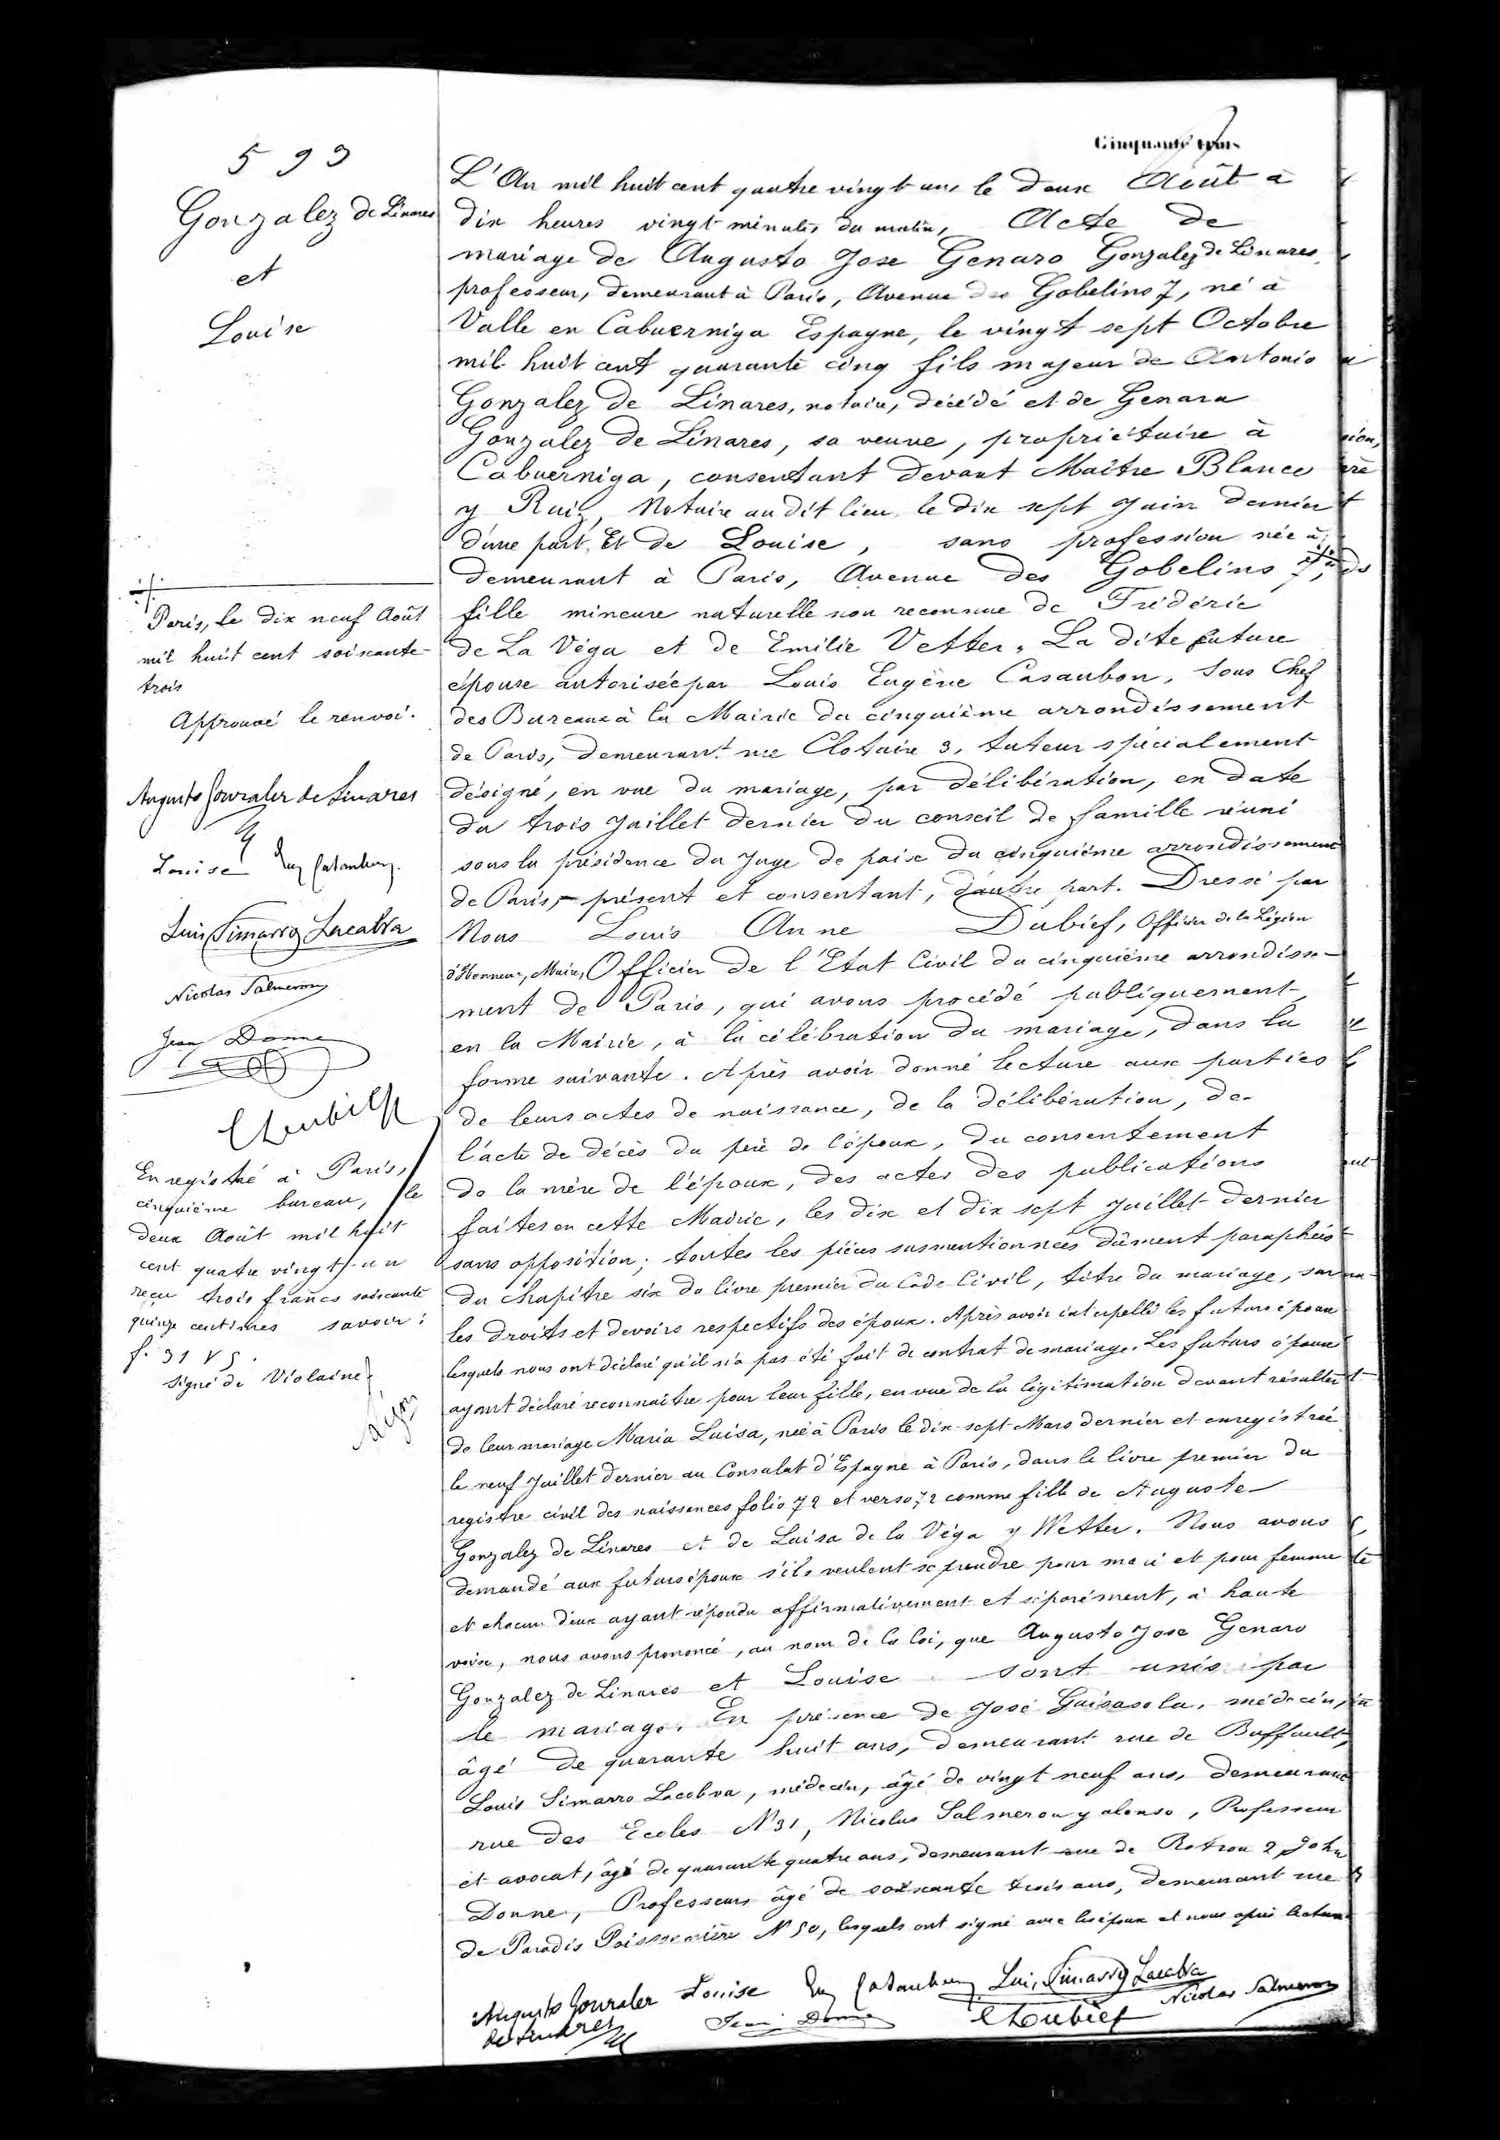 Cinquante trois
593
Gonzalez de Linares
et
Louise
L'An mil huit cent quatre vingt un, le deux Août à
dix heures vingt minutes du matin, Acte de
mariage de Augusto Jose Genaro Gonzalez de Linares,
professeur, demeurant à Paris, Avenue des Gobelins 7, né à
Valle en Cabuerniga Espagne, le vingt sept Octobre
mil huit cent quarante cinq fils majeur de Antonio
Gonzalez de Linares, notaire, décédé et de Genara
Gonzalez de Linares, sa veuve, propriétaire à
Cabuerniga, consentant devant Maître Blanco
y Ruiz, Notaire audit lieu, le dix sept Juin dernier
d'une part, Et de Louise, sans profession née à
demeurant à Paris, Avenue des Gobelins 7,
fille mineure naturelle non reconnue de Frédéric
de La Véga et de Emilie Vetter. La dite future
épouse autorisée par Louis Eugène Casaubon, Sous Chef
des Bureaux à la Mairie du cinquième arrondissement
de Paris, demeurant rue Clotaire 3, tuteur spécialement
désigné, en vue du mariage, par délibération, en date
du trois Juillet dernier du conseil de famille réuni
sous la présidence du Juge de paix du cinquième arrondissement
de Paris, présent et consentant, d'autre part. Dressé par
Nous Louis Anne Dubief, Officier de la Légion
d'Honneur, Maire, Officier de l'Etat Civil du cinquième arrondisse-
ment de Paris, qui avons procédé publiquement,
en la Mairie, à la célébration du mariage, dans la
forme suivante. Après avoir donné lecture aux parties
de leurs actes de naissance, de la délibération, de
l'acte de décès du père de l'époux, du consentement
de la mère de l'époux, des actes des publications
faites en cette Mairie, les dix et dix sept Juillet dernier
sans opposition; toutes les pièces susmentionnées dûment paraphées
du chapitre six du livre premier du Code Civil, titre du mariage, sur
les droits et devoirs respectifs des époux. Après avoir interpellé les futurs époux
lesquels nous ont déclaré qu'il n'a pas été fait de contrat de mariage. Les futurs époux
ayant déclaré reconnaître pour leur fille, en vue de la légitimation devant résulter
de leur mariage Maria Luisa, née à Paris le dix-sept Mars dernier et enregistrée
le neuf Juillet dernier au Consulat d'Espagne à Paris, dans le livre premier du
registre civil des naissances folio 72 et verso 72 comme fille de Auguste
Gonzalez de Linares et de Luisa de la Véga y Wetter. Nous avons
demandé aux futurs époux s'ils veulent se prendre pour mari et pour femme
et chacun d'eux ayant répondu affirmativement et séparément, à haute
voix, nous avons prononcé, au nom de la loi, que Augusto Jose Genaro
Gonzalez de Linares et Louise sont unis par
le mariage. En présence de José Guisasola, médecin,
âgé de quarante huit ans, demeurant rue de Buffault,
Louis Simarro Lacobra, médecin, âgé de vingt neuf ans, demeurant
rue des Ecoles N° 31, Nicolas Salmeron y alonso, Professeur
et avocat, âgé de quarante quatre ans, demeurant rue de Rotrou 2, John
Donne, Professeur âgé de soixante trois ans, demeurant rue
de Paradis Poissonnière N° 50, lesquels ont signé avec les époux et nous après lecture
Augusto Gonzalez de Linares Louise Eug Casaubon Luis Simarro Lacabra
Jean Donne Dubief Nicolas Salmeron
Paris, le dix neuf Août
mil huit cent soixante-
trois
Approuvé le renvoi.
Augusto Gonzalez de Linares
Louise Eug Casaubon
Luis Simarro Lacabra
Nicolas Salmeron
Jean Donne
Dubief
Enregistré à Paris,
cinquième bureau, le
deux Août mil huit
cent quatre vingt-un
reçu trois francs soixante
quinze centimes savoir:
f. 31 V 5.
signé de Violaine